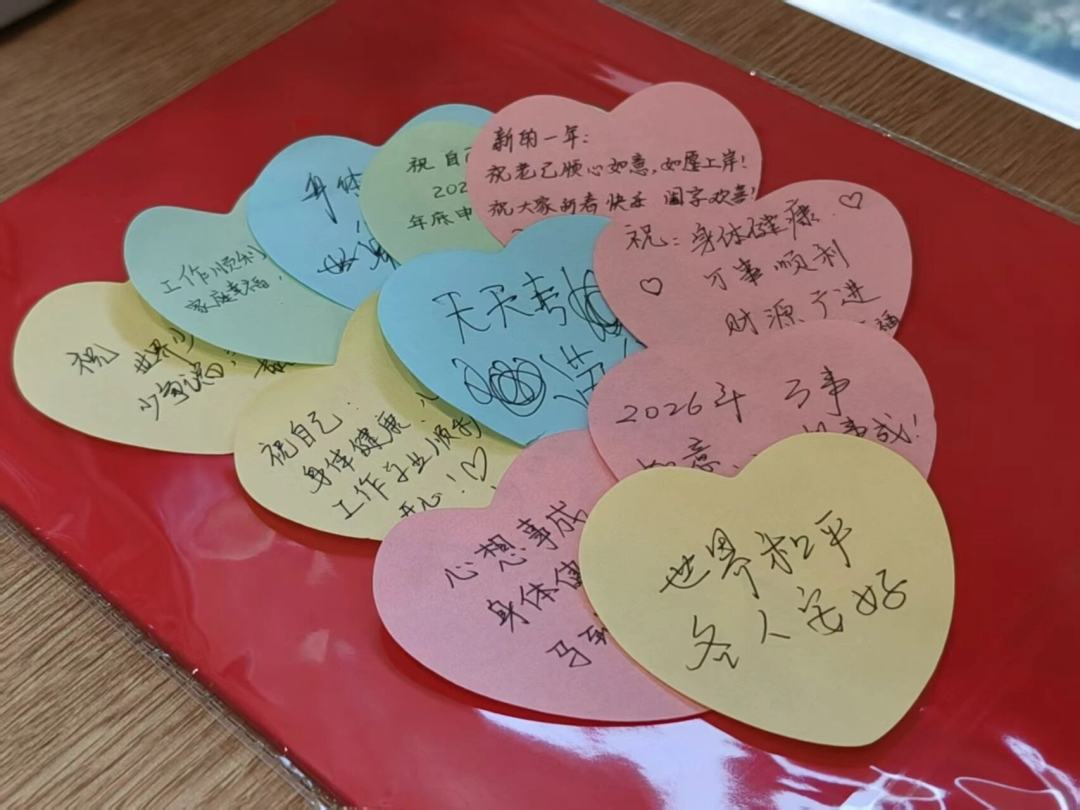 新的一年：
祝老己顺心如意，如愿上岸！
祝大家新春快乐 阖家欢喜！
祝自己
202
年底
身体
工作顺利
家庭幸福！
祝 世界
天天
祝：身体健康
万事顺利
财源广进
福
祝自己：
身体健康
工作学业顺利
开心！♡
2026年 万事
如意
事成！
心想事成
身体健
马到
世界和平
各人安好